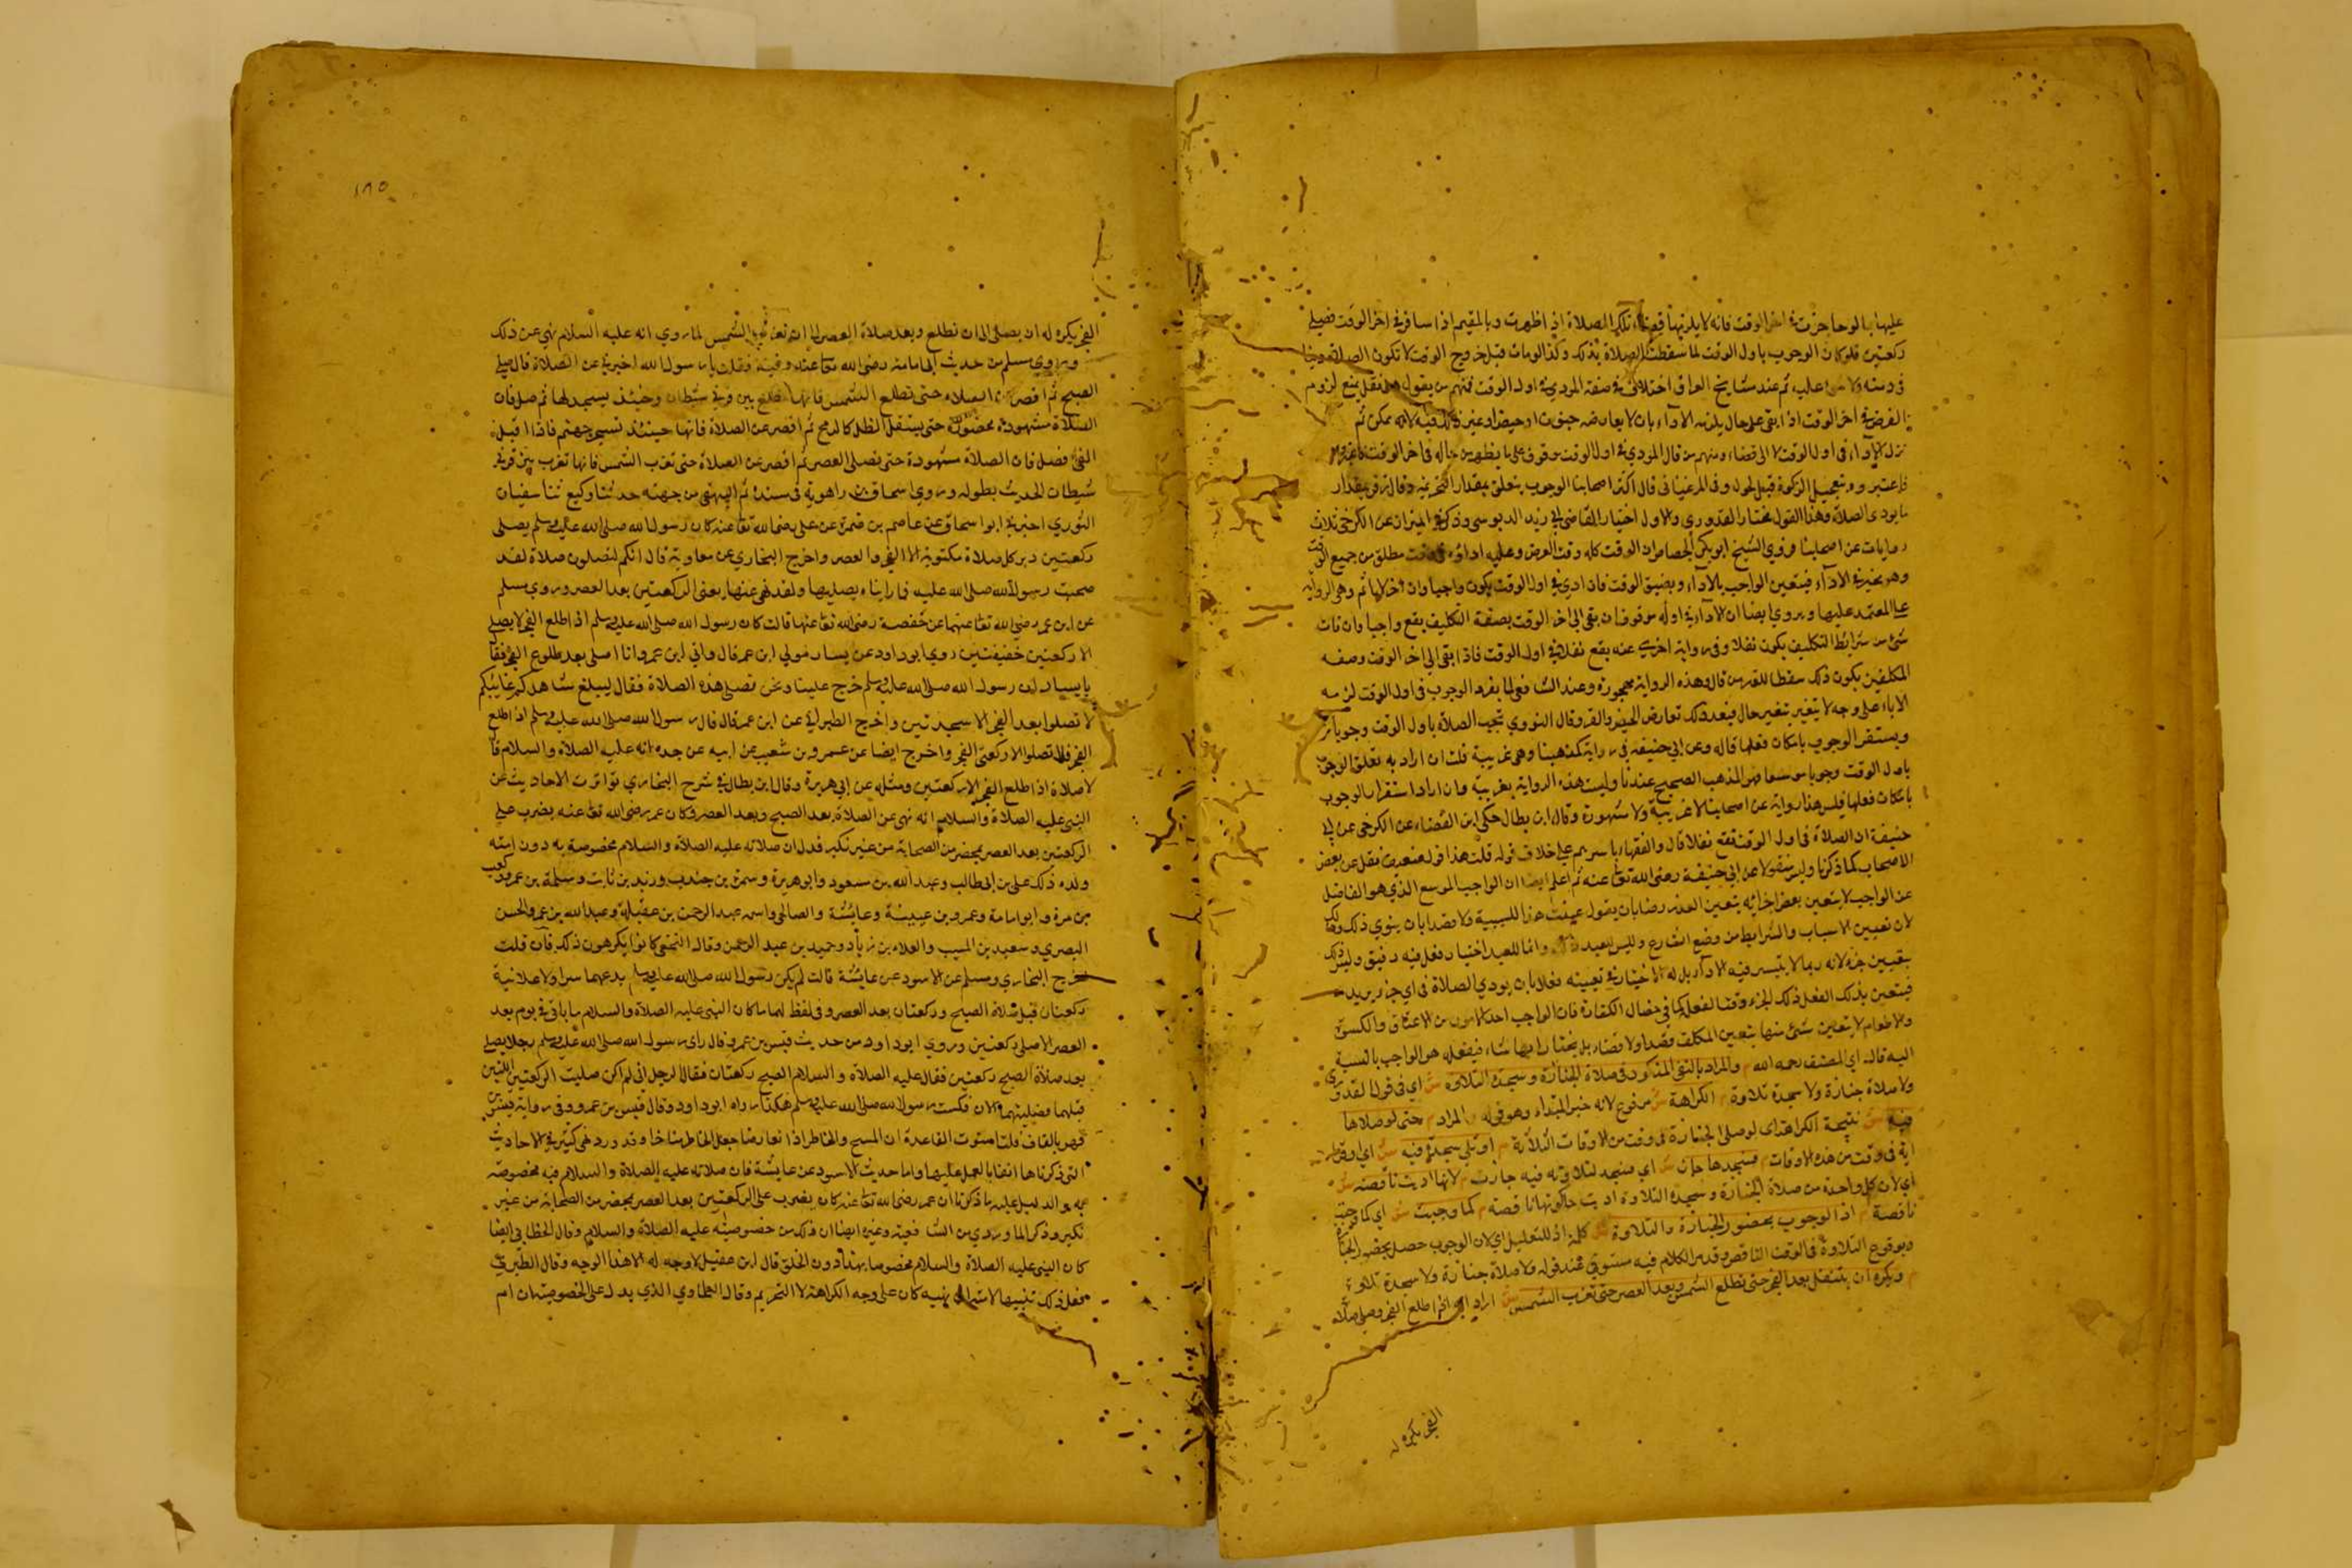 عليها بالوجا جزت في اخر الوقت فانه لا يلزمها قضاء تلك الصلاة اذا ظهرت وبالمقيم اذا سافر في اخر الوقت فيصلي
ركعتين فلو كان الوجوب باول الوقت لما سقطت الصلاة بذلك وكذا لو مات قبل خروج الوقت لا تكون الصلاة دينا
في ذمته ولا عليه ثم عند مشايخ العراق اختلاف في صفة المودي في اول الوقت فمنهم من يقول هو نفل يمنع لزوم
الفرض في اخر الوقت اذا بقي على حال يلزمه الاداء بان لا يعارضه جنون او حيض او غير ذلك لانه يمكن ثم
ترك الاداء في اول الوقت لا الى قضاء ومنهم من قال المودي في اول الوقت موقوف على ما يظهر من حاله في اخر الوقت
فاعتبروه بتعجيل الزكوة قبل الحول وفي المرغيناني قال اكثر اصحابنا الوجوب يتعلق بمقدار التحريمة وقال زفر بمقدار
ما يودى الصلاة وهذا القول مختار القدوري والاول اختيار القاضي ابي زيد الدبوسي وذكر في الميزان عن الكرخي ثلاث
روايات عن اصحابنا فروي الشيخ ابو بكر الجصاص ان الوقت كله وقت الفرض وعليه اداؤه في وقت مطلق من جميع الوقت
وهو مخير في الاداء فيتعين الواجب بالاداء وبضيق الوقت فان ادي في اول الوقت يكون واجبا وان اخر لا ياثم وهي الرواية
المعتمد عليها ويروي ايضا ان الاداء في اوله موقوف ان بقي الى اخر الوقت بصفة التكليف يقع واجبا وان فات
شيء من شرايط التكليف يكون نفلا وفي رواية اخري عنه يقع نفلا في اول الوقت فاذا بقي الى اخر الوقت وصفه
المكلفين يكون ذلك مسقطا للفرض قال وهذه الرواية مهجورة وعند الشافعي لما تقرر الوجوب في اول الوقت لزمه
الاداء على وجه لا يتغير بتغير حال فبعد ذلك تعارض الحيض والسفر وقال النووي تجب الصلاة باول الوقت وجوبا
ويستقر الوجوب بامكان فعلها قاله وعن ابي حنيفة في رواية كمذهبنا وهي غريبة قلت ان اراد به تعلق الوجوب
باول الوقت وجوبا موسعا فهو المذهب الصحيح عندنا وليست هذه الرواية بغريبة وان اراد استقرار الوجوب
بامكان فعلها فليس هذا رواية عن اصحابنا لا غريبة ولا مشهورة وقال ابن بطال حكى ابن القصار عن الكرخي عن ابي
حنيفة ان الصلاة في اول الوقت تقع نفلا قال والفقهاء باسرهم على خلاف قوله قلت هذا قول ضعيف نقل عن بعض
الاصحاب كما ذكرنا وليس منقولا عن ابي حنيفة رضى الله تعالى عنه ثم اعلم ايضا ان الواجب الموسع الذي هو الفاضل
عن الواجب لا يتعين بعض اجزائه بتعين العبد رضا بان يقول عينت هذا للسببية ولا قصدا بان ينوي ذلك وهذا
لان تعيين الاسباب والشرايط من وضع الشارع وليس للعبد ذلك وانما للعبد اختيار فعل فيه رفيق وليس ذلك
بتعيين جزء لانه ربما لا يتيسر فيه الاداء بل له الاختيار في تعيينه فعلا بان يودي الصلاة في اي جزء يريد
فيتعين بذلك الفعل ذلك الجزء وقتا لفعله كما في خصال الكفارة فان الواجب احد الامور من الاعتاق والكسوة
والاطعام لا يتعين شيء منها بتعيين المكلف قصدا ولا قضاء بل يختار ايها شاء فيفعله هو الواجب بالنسبة
اليه قال اي المصنف رحمه الله م والمراد بالنفي المذكور في صلاة الجنازة وسجدة التلاوة ش اي في قول القدوري
ولا صلاة جنازة ولا سجدة تلاوة م الكراهة ش مرفوع لانه خبر المبتداء وهو قوله والمراد م حتى لو صلاها
فيه ش نتيجة الكراهة اي لو صلى الجنازة في وقت من الاوقات الثلاثة م او تلي سجدة فيه ش اي او قرأ
اية في وقت من هذه الاوقات م فسجدها جاز ش اي سجد لتلاوته فيه جازت م لانها اديت ناقصة ش
اي لان كل واحدة من صلاة الجنازة وسجدة التلاوة اديت حال كونها ناقصة م كما وجبت ش اي كما وجبت
ناقصة م اذ الوجوب بحضور الجنازة والتلاوة ش كلمة اذ للتعليل اي لان الوجوب حصل بحضور الجنازة
وبوقوع التلاوة في الوقت الناقص وقد مر الكلام فيه مستوفى عند قوله ولا صلاة جنازة ولا سجدة تلاوة
م ويكره ان يتنفل بعد الفجر حتى تطلع الشمس وبعد العصر حتى تغرب الشمس ش اراد انه اذا طلع الفجر وصلى صلاة
الفجر يكره له
١٨٥
الفجر يكره له ان يصلي الى ان تطلع وبعد صلاة العصر الى ان تغرب الشمس لما روي انه عليه السلام نهى عن ذلك
وروى مسلم من حديث ابي امامة رضى الله تعا عنه وفيه فقلت يا رسول الله اخبرني عن الصلاة قال صل
الصبح ثم اقصر عن الصلاة حتى تطلع الشمس فانها تطلع بين قرني شيطان وحينئذ يسجد لها ثم صل فان
الصلاة مشهودة محضورة حتى يستقل الظل كالرمح ثم اقصر عن الصلاة فانها حينئذ تسجر جهنم فاذا اقبل
الفيء فصل فان الصلاة مشهودة حتى تصلى العصر ثم اقصر عن الصلاة حتى تغرب الشمس فانها تغرب بين قرني
شيطان الحديث بطوله وروى اسحاق بن راهوية في مسنده ثم البيهقي من جهته حدثنا وكيع ثنا سفيان
الثوري اخبرني ابو اسحاق عن عاصم بن ضمرة عن علي رضى الله تعا عنه كان رسول الله صلى الله عليه وسلم يصلى
ركعتين دبر كل صلاة مكتوبة الا الفجر والعصر واخرج البخاري عن معاوية قال انكم لتصلون صلاة لقد
صحبت رسول الله صلى الله عليه فما رايناه يصليها ولقد نهى عنها يعنى الركعتين بعد العصر وروي مسلم
عن ابن عمر رضي الله تعا عنهما عن حفصة رضى الله تعا عنها قالت كان رسول الله صلى الله عليه وسلم اذا طلع الفجر لا يصلي
الا ركعتين خفيفتين روي ابو داود عن يسار مولي ابن عمر قال راني ابن عمر وانا اصلى بعد طلوع الفجر فقال
يا يسار ان رسول الله صلى الله عليه وسلم خرج علينا ونحن نصلي هذه الصلاة فقال ليبلغ شاهدكم غايبكم
لا تصلوا بعد الفجر الا سجدتين واخرج الطبراني عن ابن عمر قال قال رسول الله صلى الله عليه وسلم اذا طلع
الفجر فلا تصلوا الا ركعتي الفجر واخرج ايضا عن عمرو بن شعيب عن ابيه عن جده انه عليه الصلاة والسلام قال
لا صلاة اذا طلع الفجر الا ركعتين ومثله عن ابي هريرة وقال ابن بطال في شرح البخاري تواترت الاحاديث عن
النبي عليه الصلاة والسلام انه نهى عن الصلاة بعد الصبح وبعد العصر وكان عمر رضى الله تعا عنه يضرب على
الركعتين بعد العصر بمحضر من الصحابة من غير نكير فدل ان صلاته عليه الصلاة والسلام مخصوصة به دون امته
وكره ذلك على بن ابي طالب وعبد الله بن مسعود وابو هريرة وسمرة بن جندب وزيد بن ثابت وسلمة بن عمرو وكعب
بن مرة وابو امامة وعمرو بن عيينة وعايشة والصالحي واسمه عبد الرحمن بن عقيلة وعبد الله بن عمر والحسن
البصري وسعيد بن المسيب والعلاء بن زياد وحميد بن عبد الرحمن وقال النخعي كانوا يكرهون ذلك فان قلت
اخرج البخاري ومسلم عن الاسود عن عايشة قالت لم يكن رسول الله صلى الله عليه وسلم يدعهما سرا ولا علانية
ركعتان قبل صلاة الصبح وركعتان بعد العصر وفي لفظ لهما ما كان النبي عليه الصلاة والسلام ياتي في يوم بعد
العصر الا صلى ركعتين وروي ابو داود من حديث قيس بن عمرو قال راى رسول الله صلى الله عليه وسلم رجلا يصلي
بعد صلاة الصبح ركعتين فقال عليه الصلاة والسلام الصبح ركعتان فقال الرجل اني لم اكن صليت الركعتين اللتين
قبلهما فصليتهما الان فسكت رسول الله صلى الله عليه وسلم هكذا رواه ابو داود وقال قيس بن عمرو وفي رواية قيس بن
قهد بالقاف قلت استقرت القاعدة ان المبيح والحاظر اذا تعارضا جعل الحاظر متاخرا وقد ورد نهى كثير في الاحاديث
التي ذكرناها اتفاقا بالعمل عليها واما حديث الاسود عن عايشة فان صلاته عليه الصلاة والسلام فيه مخصوصة
به والدليل عليه ما ذكرنا ان عمر رضى الله تعا عنه كان يضرب على الركعتين بعد العصر بمحضر من الصحابة من غير
نكير وذكر الماوردي من الشافعية وغيره ايضا ان ذلك من خصوصيته عليه الصلاة والسلام وقال الخطابي ايضا
كان النبي عليه الصلاة والسلام مخصوصا بهذا دون الخلق قال ابن عقيل لا وجه له الا هذا الوجه وقال الطبري
فعل ذلك تنبيها لامته ان نهيه كان على وجه الكراهة لا التحريم وقال الطحاوي الذي يدل على الخصوصية ان ام